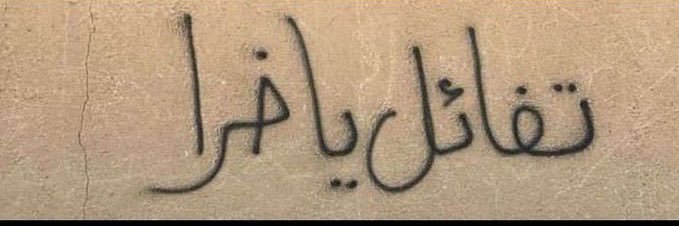 تفائل يا خرا